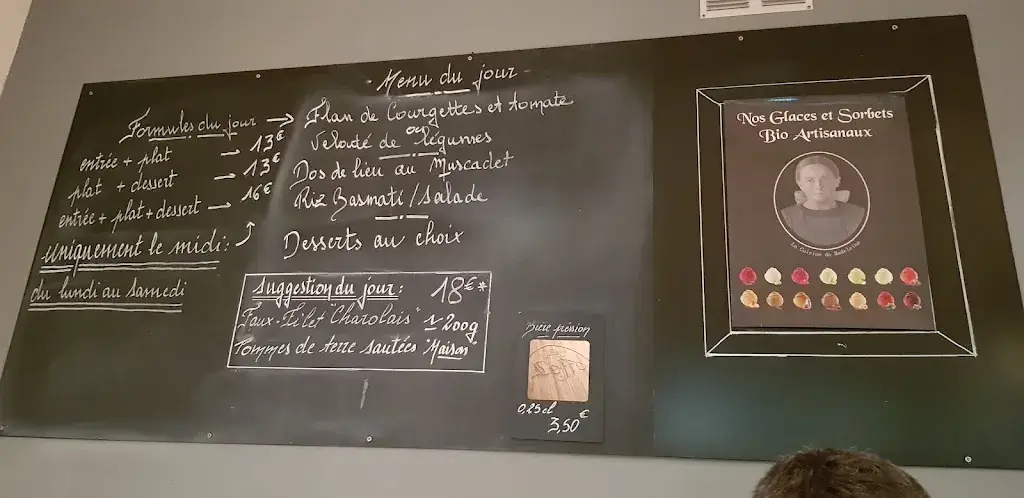 - Menu du jour -
Formules du jour →
entrée + plat → 13€
plat + dessert → 13€
entrée + plat + dessert → 16€
uniquement le midi:
du lundi au samedi
Flan de Courgettes et tomate
ou
Velouté de légumes
Dos de lieu au Muscadet
Riz Basmati / Salade
Desserts au choix
Suggestion du jour: 18€*
Faux-Filet "Charolais" ± 200g
Pommes de terre sautées "Maison"
Bière pression
0,25 cl
3,50€
Nos Glaces et Sorbets
Bio Artisanaux
La Cuisine de Madeleine